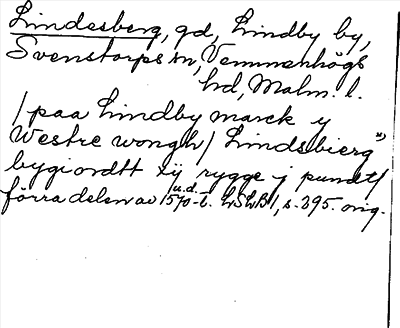 Lindesberg, gd, Lindby by,
Svenstorps sn, Vemmenhögs
hd, Malm. l.
/paa Lindby marck y
Westre wongh/ Lindsbierg x)
bygi ordtt xij rygge j pundt/
förra delen av 1570-t. u.d. LSLB1, s. 395. orig.